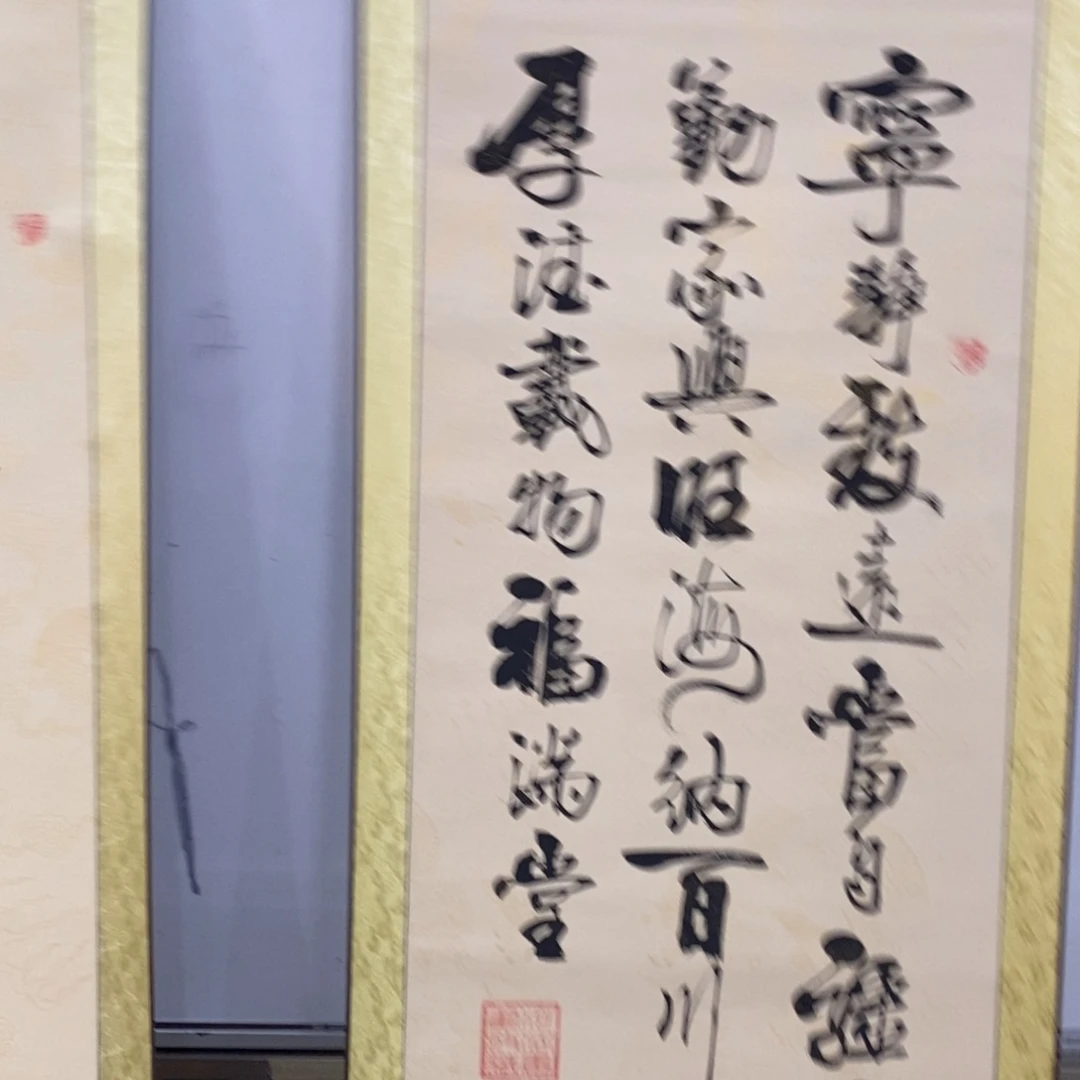 寧靜致遠當自
家興旺海納百川
厚德載物福滿堂